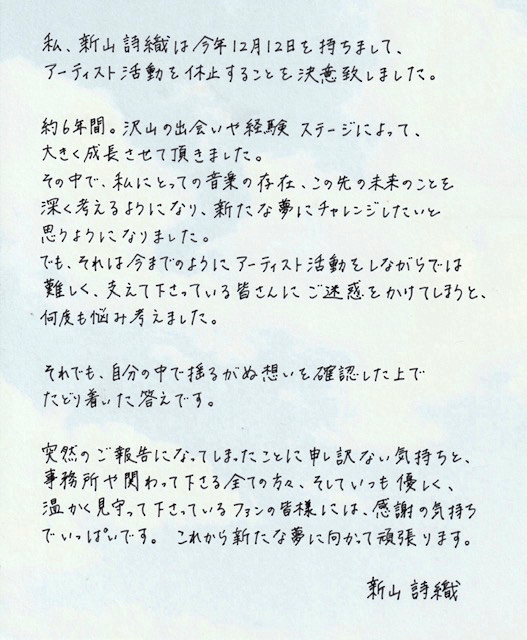 私、新山詩織は今年12月12日を持ちまして、
アーティスト活動を休止することを決意致しました。
約6年間。沢山の出会いや経験 ステージによって、
大きく成長させて頂きました。
その中で、私にとっての音楽の存在、この先の未来のことを
深く考えるようになり、新たな夢にチャレンジしたいと
思うようになりました。
でも、それは今までのようにアーティスト活動をしながらでは
難しく、支えて下さっている皆さんにご迷惑をかけてしまうと、
何度も悩み考えました。
それでも、自分の中で揺るがぬ想いを確認した上で
たどり着いた答えです。
突然のご報告になってしまったことに申し訳ない気持ちと、
事務所や関わって下さる全ての方々、そしていつも優しく、
温かく見守って下さっているファンの皆様には、感謝の気持ち
でいっぱいです。 これから新たな夢に向かって頑張ります。
新山 詩織